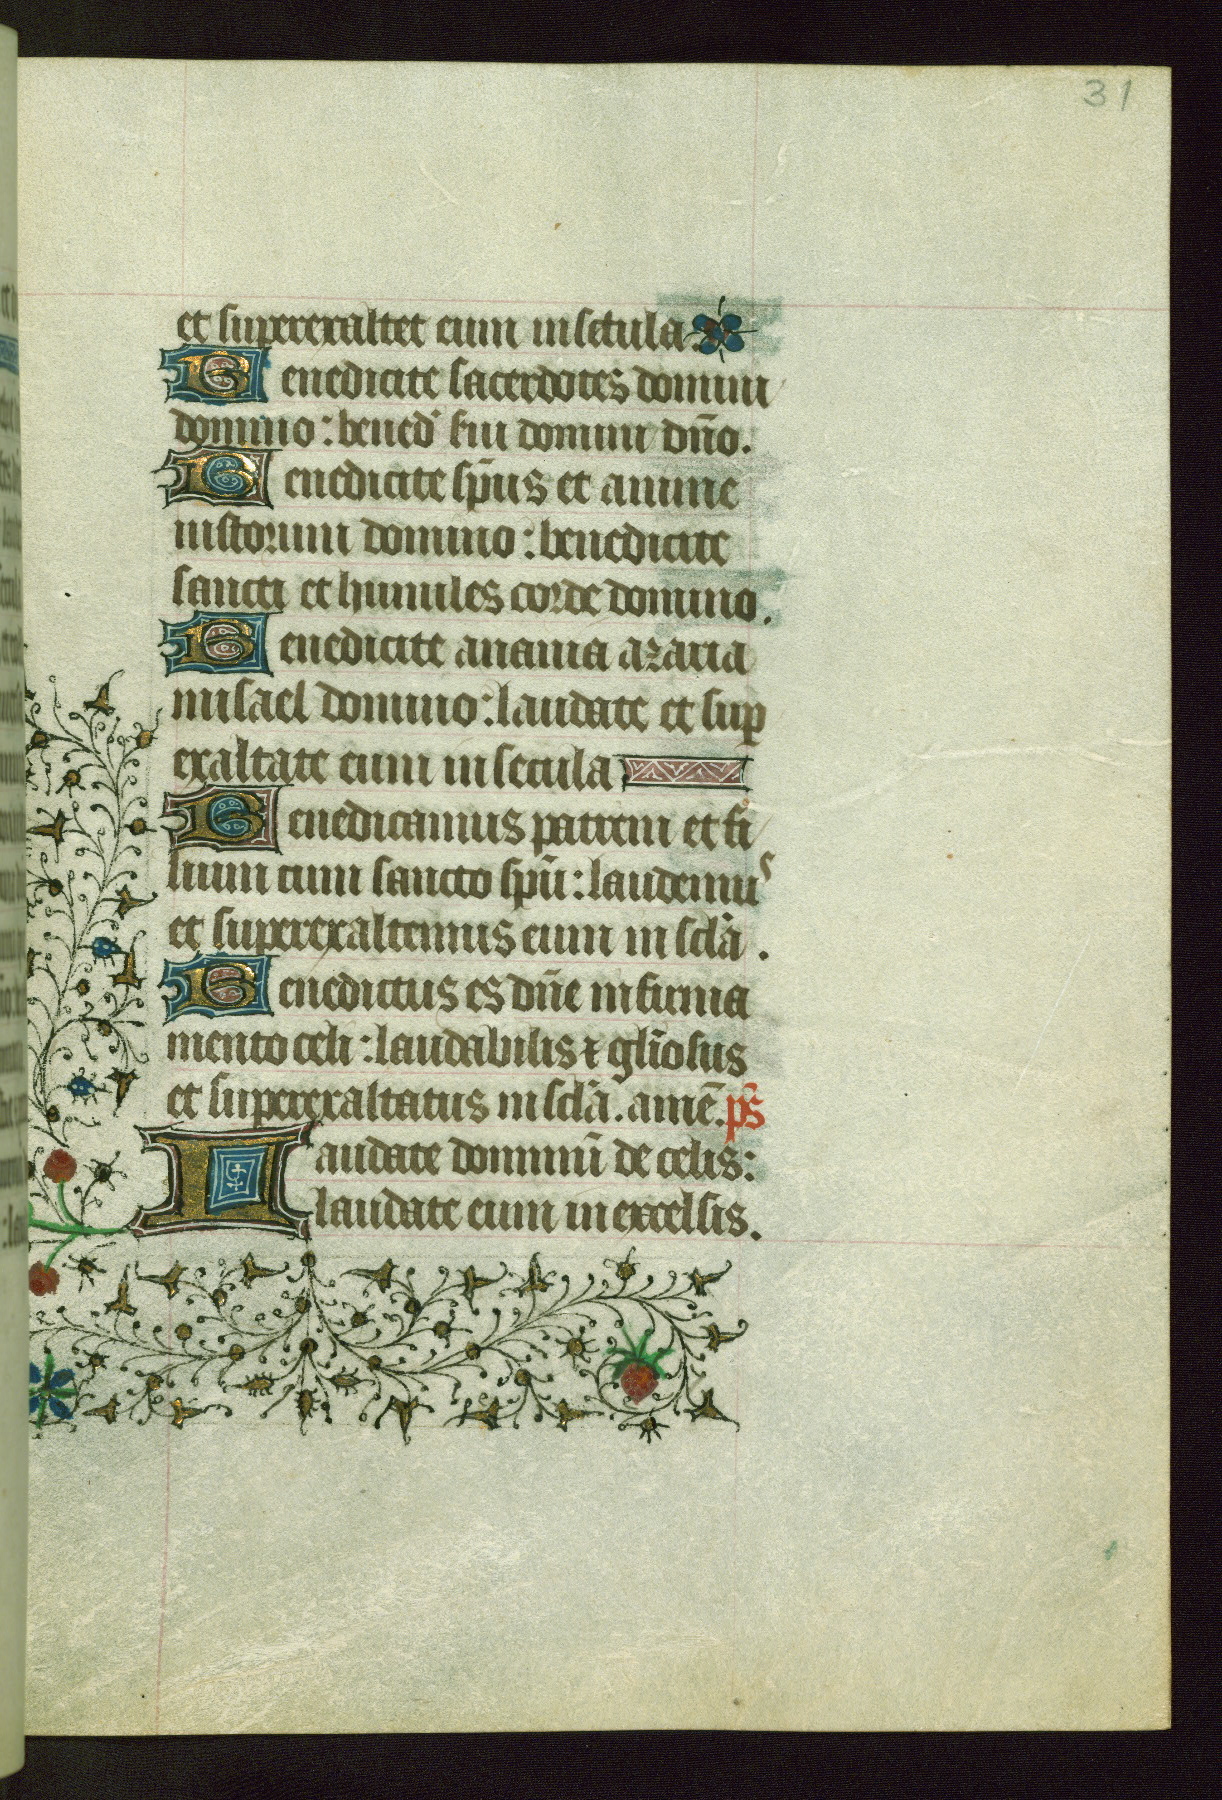 31
et superexaltet eum in secula.
Benedicite sacerdotes domini
domino: bened' s̃ui domini dño.
Benedicite sp̃us et anime
iustorum domino: benedicite
sancti et humiles corde domino.
Benedicite anania azaria
misael domino: laudate et sup
exaltate eum in secula
Benedicamus patrem et fi
lium cum sancto spũ: laudemus
et superexaltemus eum in scl̃a.
Benedictus es dñe in firma
mento celi: laudabilis ⁊ gl̃iosus
et superexaltatus in scl̃a. amẽ. p̃s
Laudate dominũ de celis:
laudate eum in excelsis.